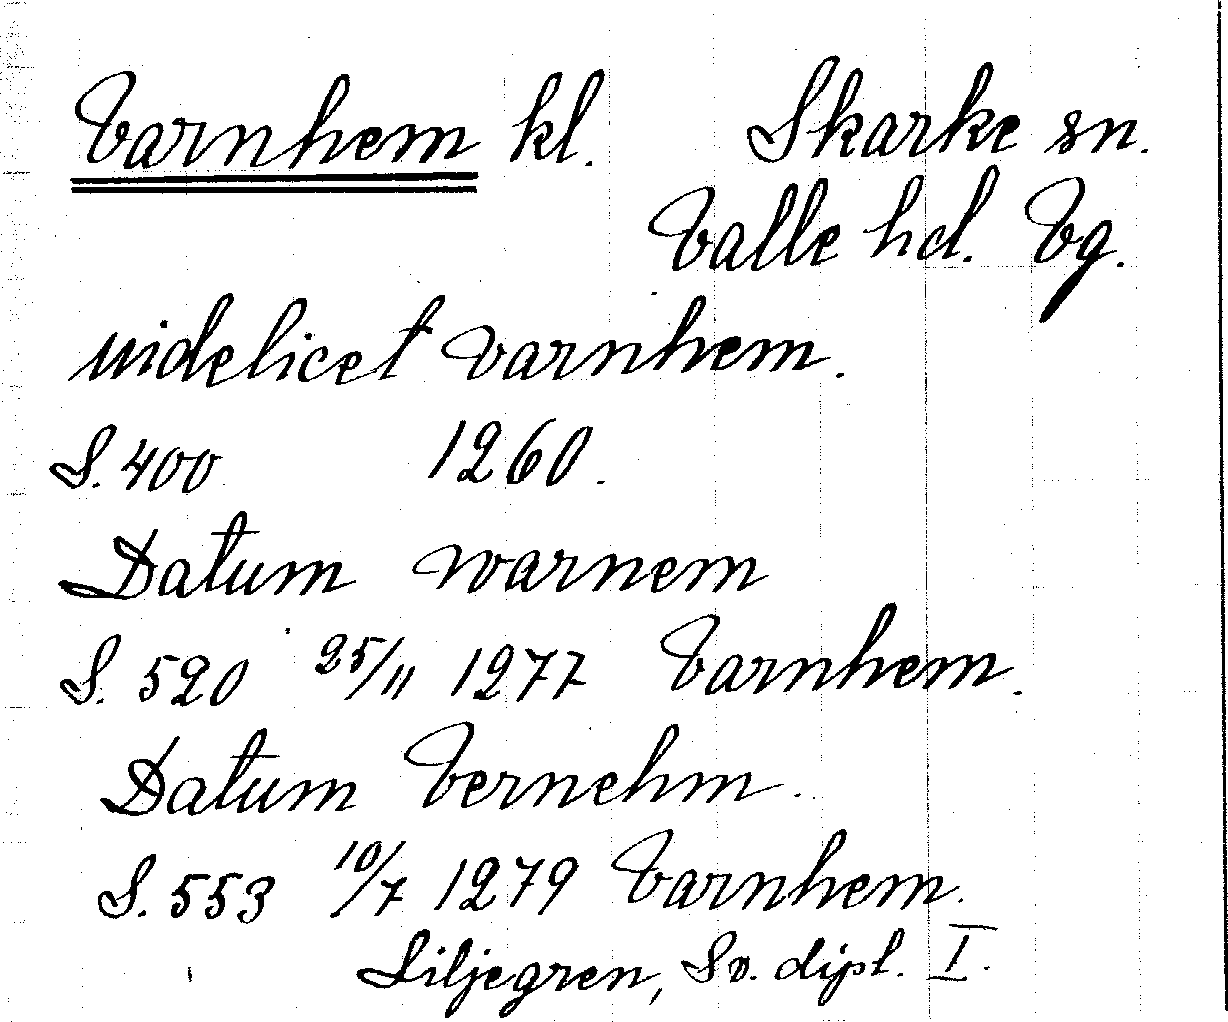 Varnhem kl. Skarke sn.
Valle hd. Vg.
uidelicet varnhem.
S. 400 1260.
Datum warnem
S. 520 25/11 1277 Varnhem.
Datum Vernehm.
S. 553 10/7 1279 Varnhem.
Liljegren, Sv. dipl. I.